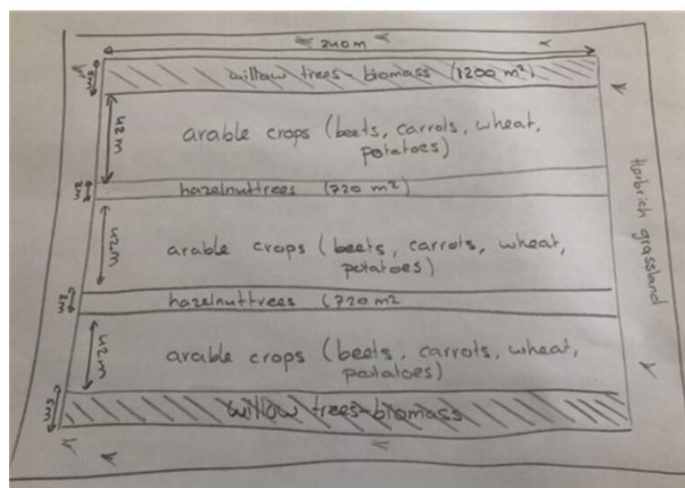 240m
5m
willow trees-biomass (1200 m²)
42m
arable crops (beets, carrots, wheat,
potatoes)
2m
hazelnuttrees (720 m²)
42m
arable crops (beets, carrots, wheat,
potatoes)
Herbrich grassland
2m
hazelnuttrees (720 m²
42m
arable crops (beets, carrots, wheat,
potatoes)
5m
willow trees-biomass